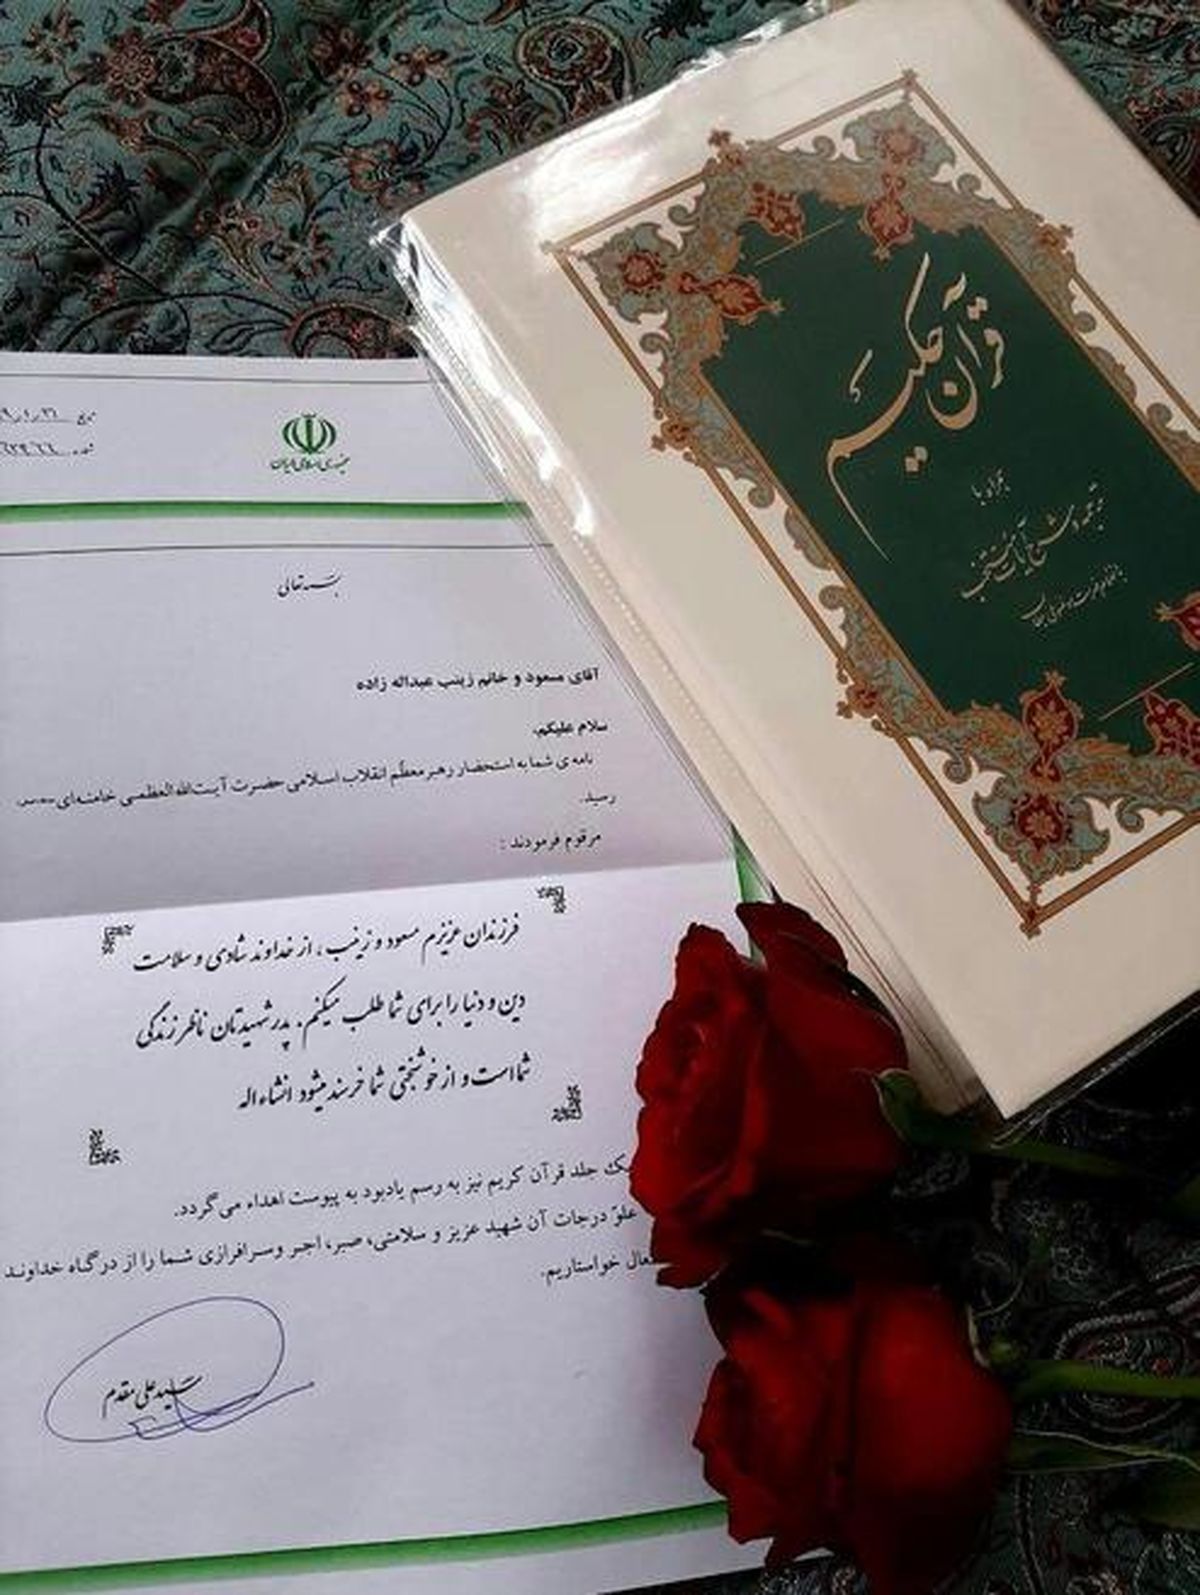 قرآن حکیم
همراه با
ترجمه و شرح آیات منتخب
تاریخ
شماره
جمهوری اسلامی ایران
بسمه تعالی
آقای مسعود و خانم زینب عبداله زاده
سلام علیکم.
نامه ی شما به استحضار رهبر معظّم انقلاب اسلامی حضرت آیت‌الله‌العظمی خامنه‌ای
رسید.
مرقوم فرمودند :
فرزندان عزیزم مسعود و زینب ، از خداوند شادی و سلامت
دین و دنیا را برای شما طلب میکنم. پدر شهیدتان ناظر زندگی
شما است و از خوشبختی شما خرسند میشود انشاءاله
یک جلد قرآن کریم نیز به رسم یادبود به پیوست اهداء می‌گردد.
علوّ درجات آن شهید عزیز و سلامتی، صبر، اجر و سرافرازی شما را از درگاه خداوند
خواستاریم.
سید علی مقدم